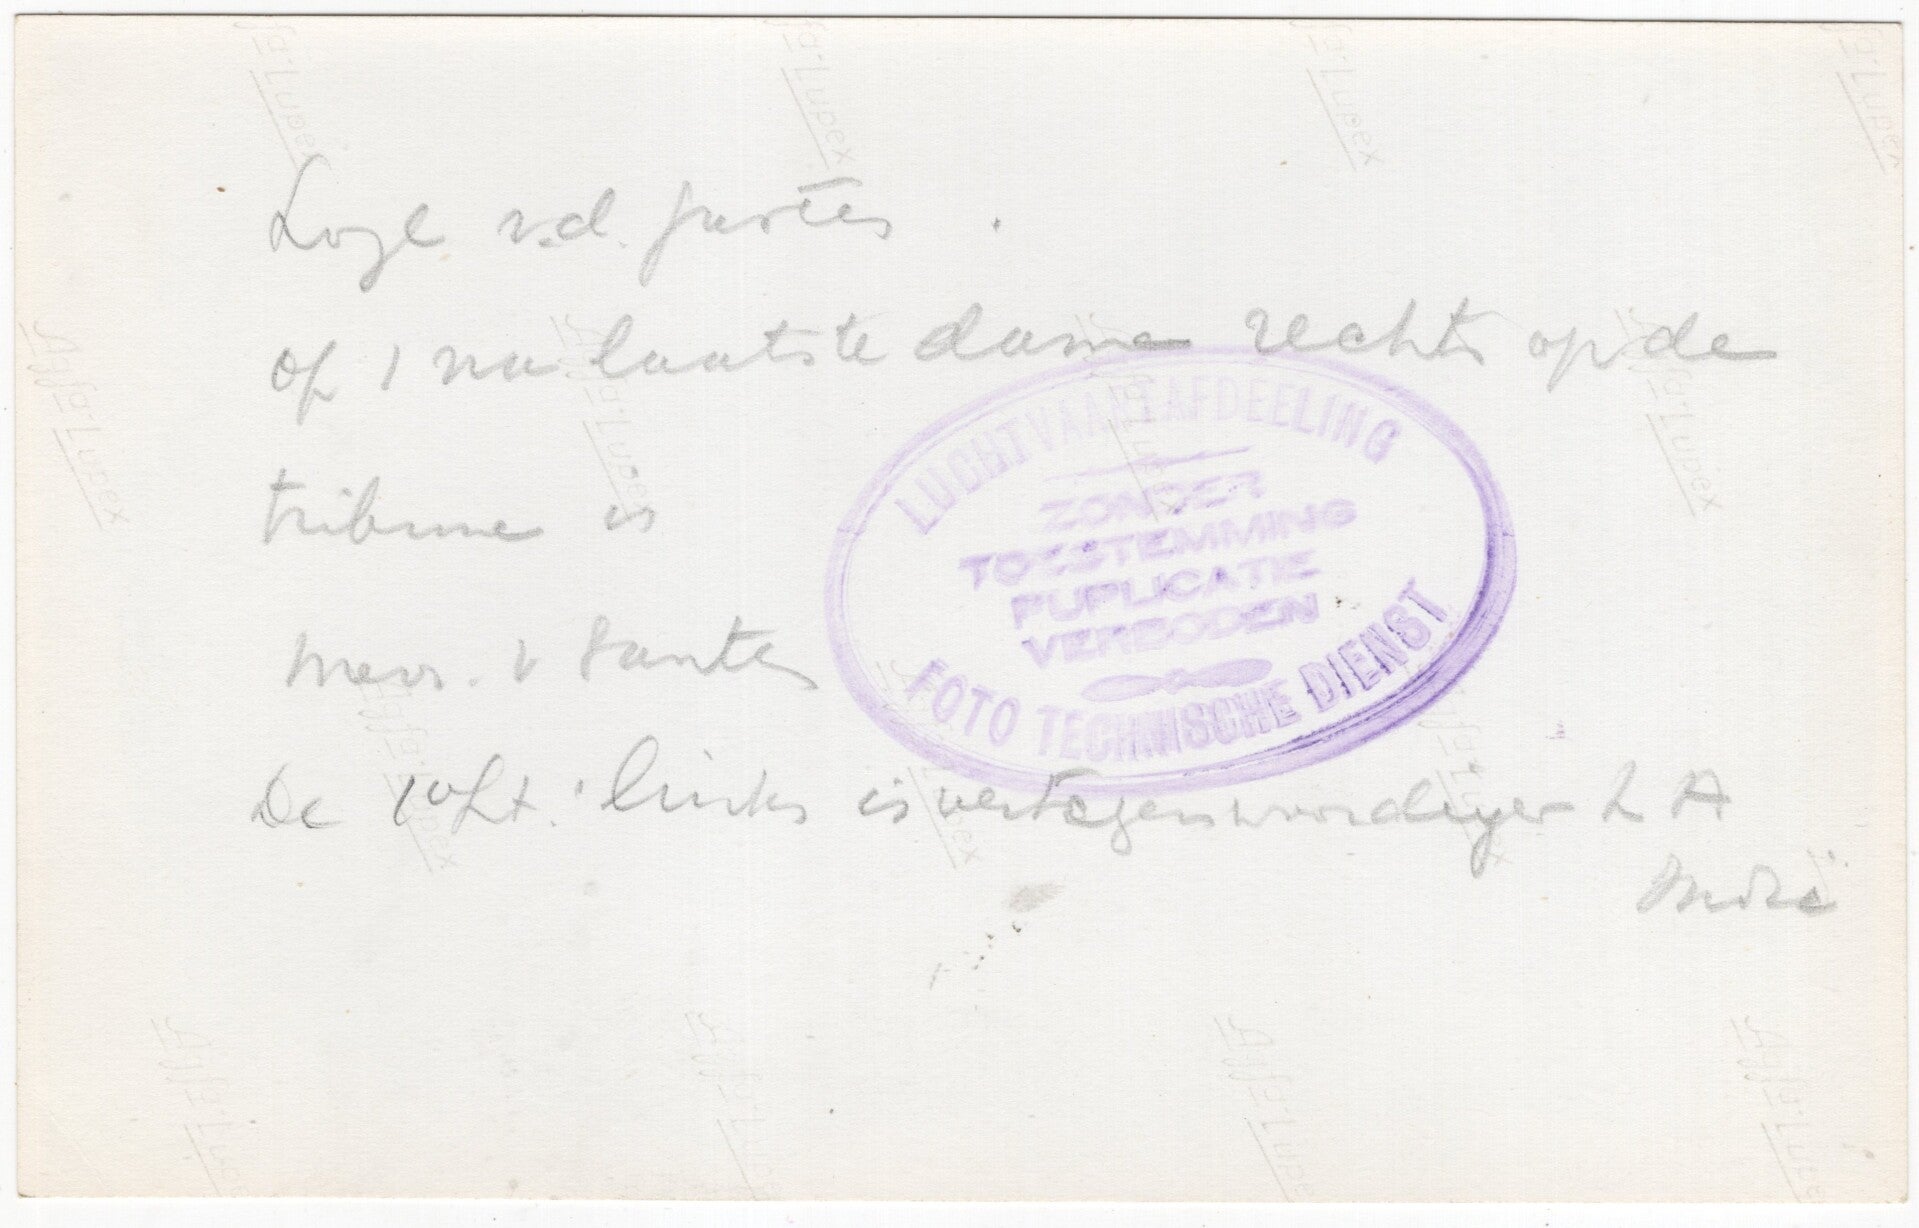 Loge v.d. gasten.
op 1 na laatste dame rechts op de
tribune is
Mevr. v Santen
De 1e Lt. links is vertegenwoordiger L A
Indië
LUCHTVAARTAFDEELING
ZONDER
TOESTEMMING
PUPLICATIE
VERBODEN
FOTO TECHNISCHE DIENST
Agfa-Lupex